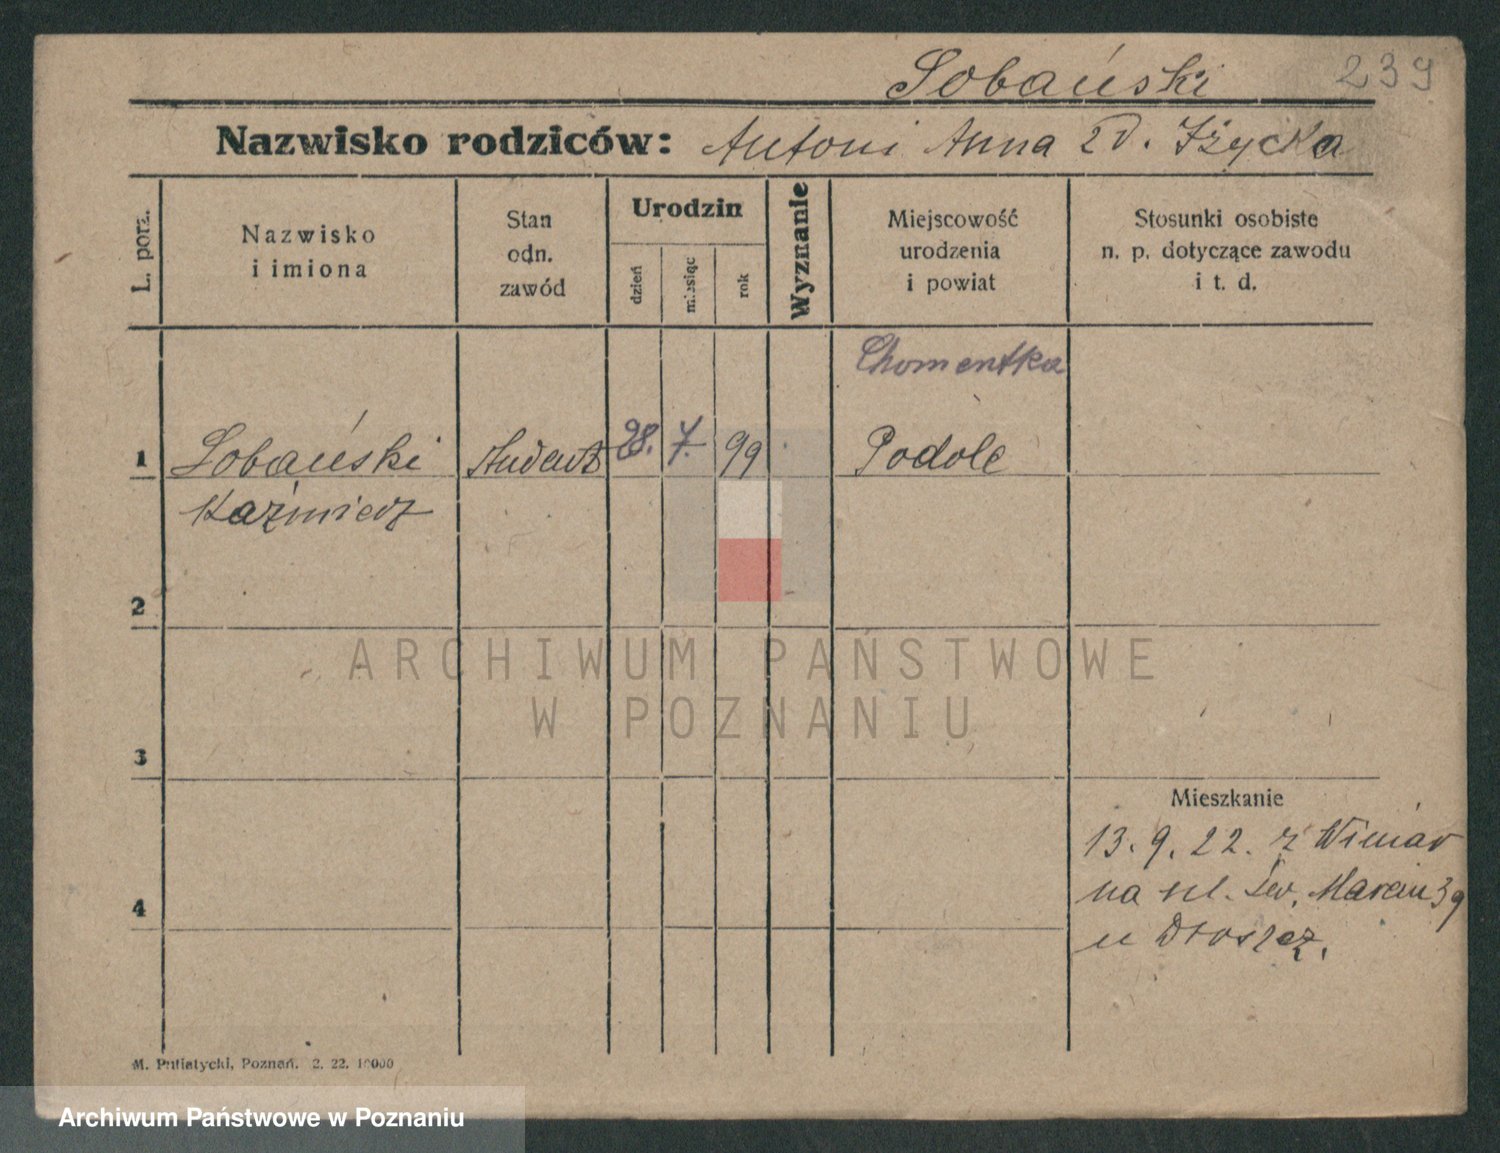 Sobański
239
Nazwisko rodziców: Antoni Anna zd. Iżycka
L. porz.
Nazwisko
i imiona
Stan
odn.
zawód
Urodzin
dzień
miesiąc
rok
Wyznanie
Miejscowość
urodzenia
i powiat
Stosunki osobiste
n. p. dotyczące zawodu
i t. d.
Chomentka
1 Sobański Student 28. 7. 99 Podole
Kaźmierz
2
3
4
Mieszkanie
13. 9. 22. z Winiar
na ul. Św. Marcin 39
u
M. Putiatycki, Poznań. 2. 22. 10000
ARCHIWUM PAŃSTWOWE
W POZNANIU
Archiwum Państwowe w Poznaniu